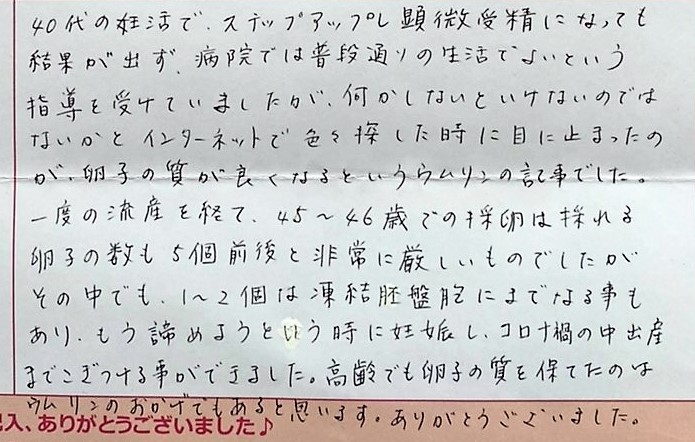 40代の妊活で、ステップアップし顕微受精になっても
結果が出ず、病院では普段通りの生活でよいという
指導を受けていましたが、何かしないといけないのでは
ないかとインターネットで色々探した時に目に止まったの
が、卵子の質が良くなるというウムリンの記事でした。
一度の流産を経て、45～46歳での採卵は採れる
卵子の数も5個前後と非常に厳しいものでしたが
その中でも、1～2個は凍結胚盤胞にまでなる事も
あり、もう諦めようという時に妊娠し、コロナ禍の中出産
までこぎつける事ができました。高齢でも卵子の質を保てたのは
ウムリンのおかげでもあると思います。ありがとうございました。
記入、ありがとうございました♪